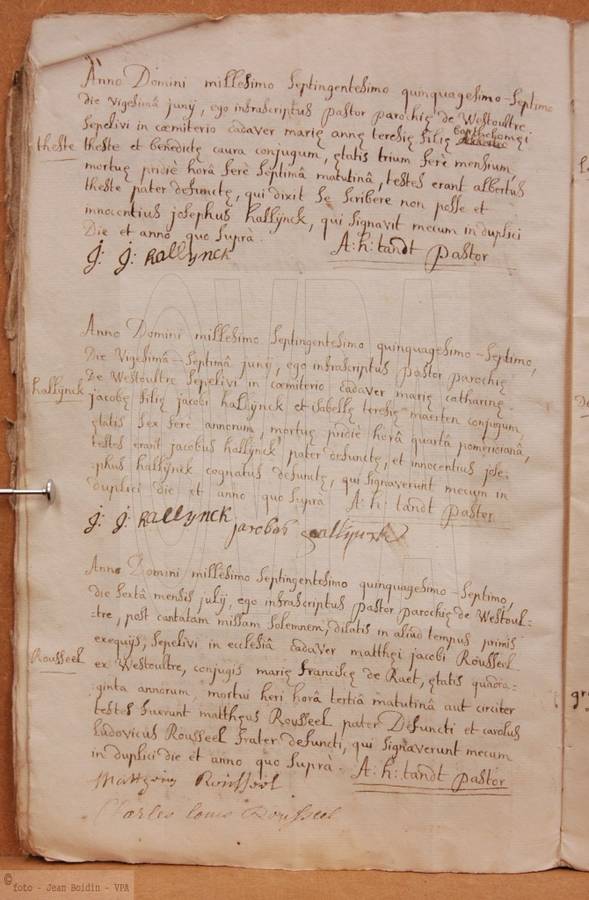 Anno Domini millesimo septingentesimo quinquagesimo-septimo
die vigesimâ junij, ego infrascriptus pastor parochię de Westoultre
sepelivi in cœmiterio cadaver marię annę teresię filię bartholomęi
theste
theste et benedictę caura conjugum, ętatis trium ferè mensium,
mortuę pridiè horâ ferè septimâ matutinâ, testes erant albertus
theste pater defunctę, qui dixit se scribere non posse et
innocentius josephus hallÿnck, qui signavit mecum in duplici
Die et anno quo suprà.
A: h: tandt pastor
J: J: hallynck
Anno Domini millesimo septingentesimo quinquagesimo-septimo,
Die vigesimâ-septimâ junij, ego infrascriptus pastor parochię
De Westoultre sepelivi in cœmiterio cadaver marię catharinę
hallÿnck
jacobę filię jacobi hallÿnck et isabellę teresię maerten conjugum,
ętatis sex ferè annorum, mortuę pridiè horâ quartâ pomeridianâ,
testes erant jacobus hallÿnck pater defunctę, et innocentius jose:
:phus hallÿnck cognatus defunctę, qui signaverunt mecum in
duplici die et anno quo suprà
A: h: tandt pastor
J: J: hallynck jacobus hallijnck
Anno Domini millesimo septingentesimo quinquagesimo-septimo,
die sextâ mensis julij, ego infrascriptus pastor parochię de Westoul-
:tre, post cantatam missam solemnem, dilatis in aliud tempus primis
exequijs, sepelivi in ecclesiâ cadaver matthęi jacobi Rousseel
Rousseel
ex Westoultre, conjugis marię francisčę de Raet, ętatis quadra:
:ginta annorum, mortui heri horâ tertiâ matutinâ aut circiter
testes fuerunt matthęus Rousseel pater Defuncti et carolus
ludovicus Rousseel frater defuncti, qui signaverunt mecum
in duplici die et anno quo suprà.
A: h: tandt pastor
Mattheus Rousseel
Charles louis Rousseel
© foto - Jean Boidin - VPA